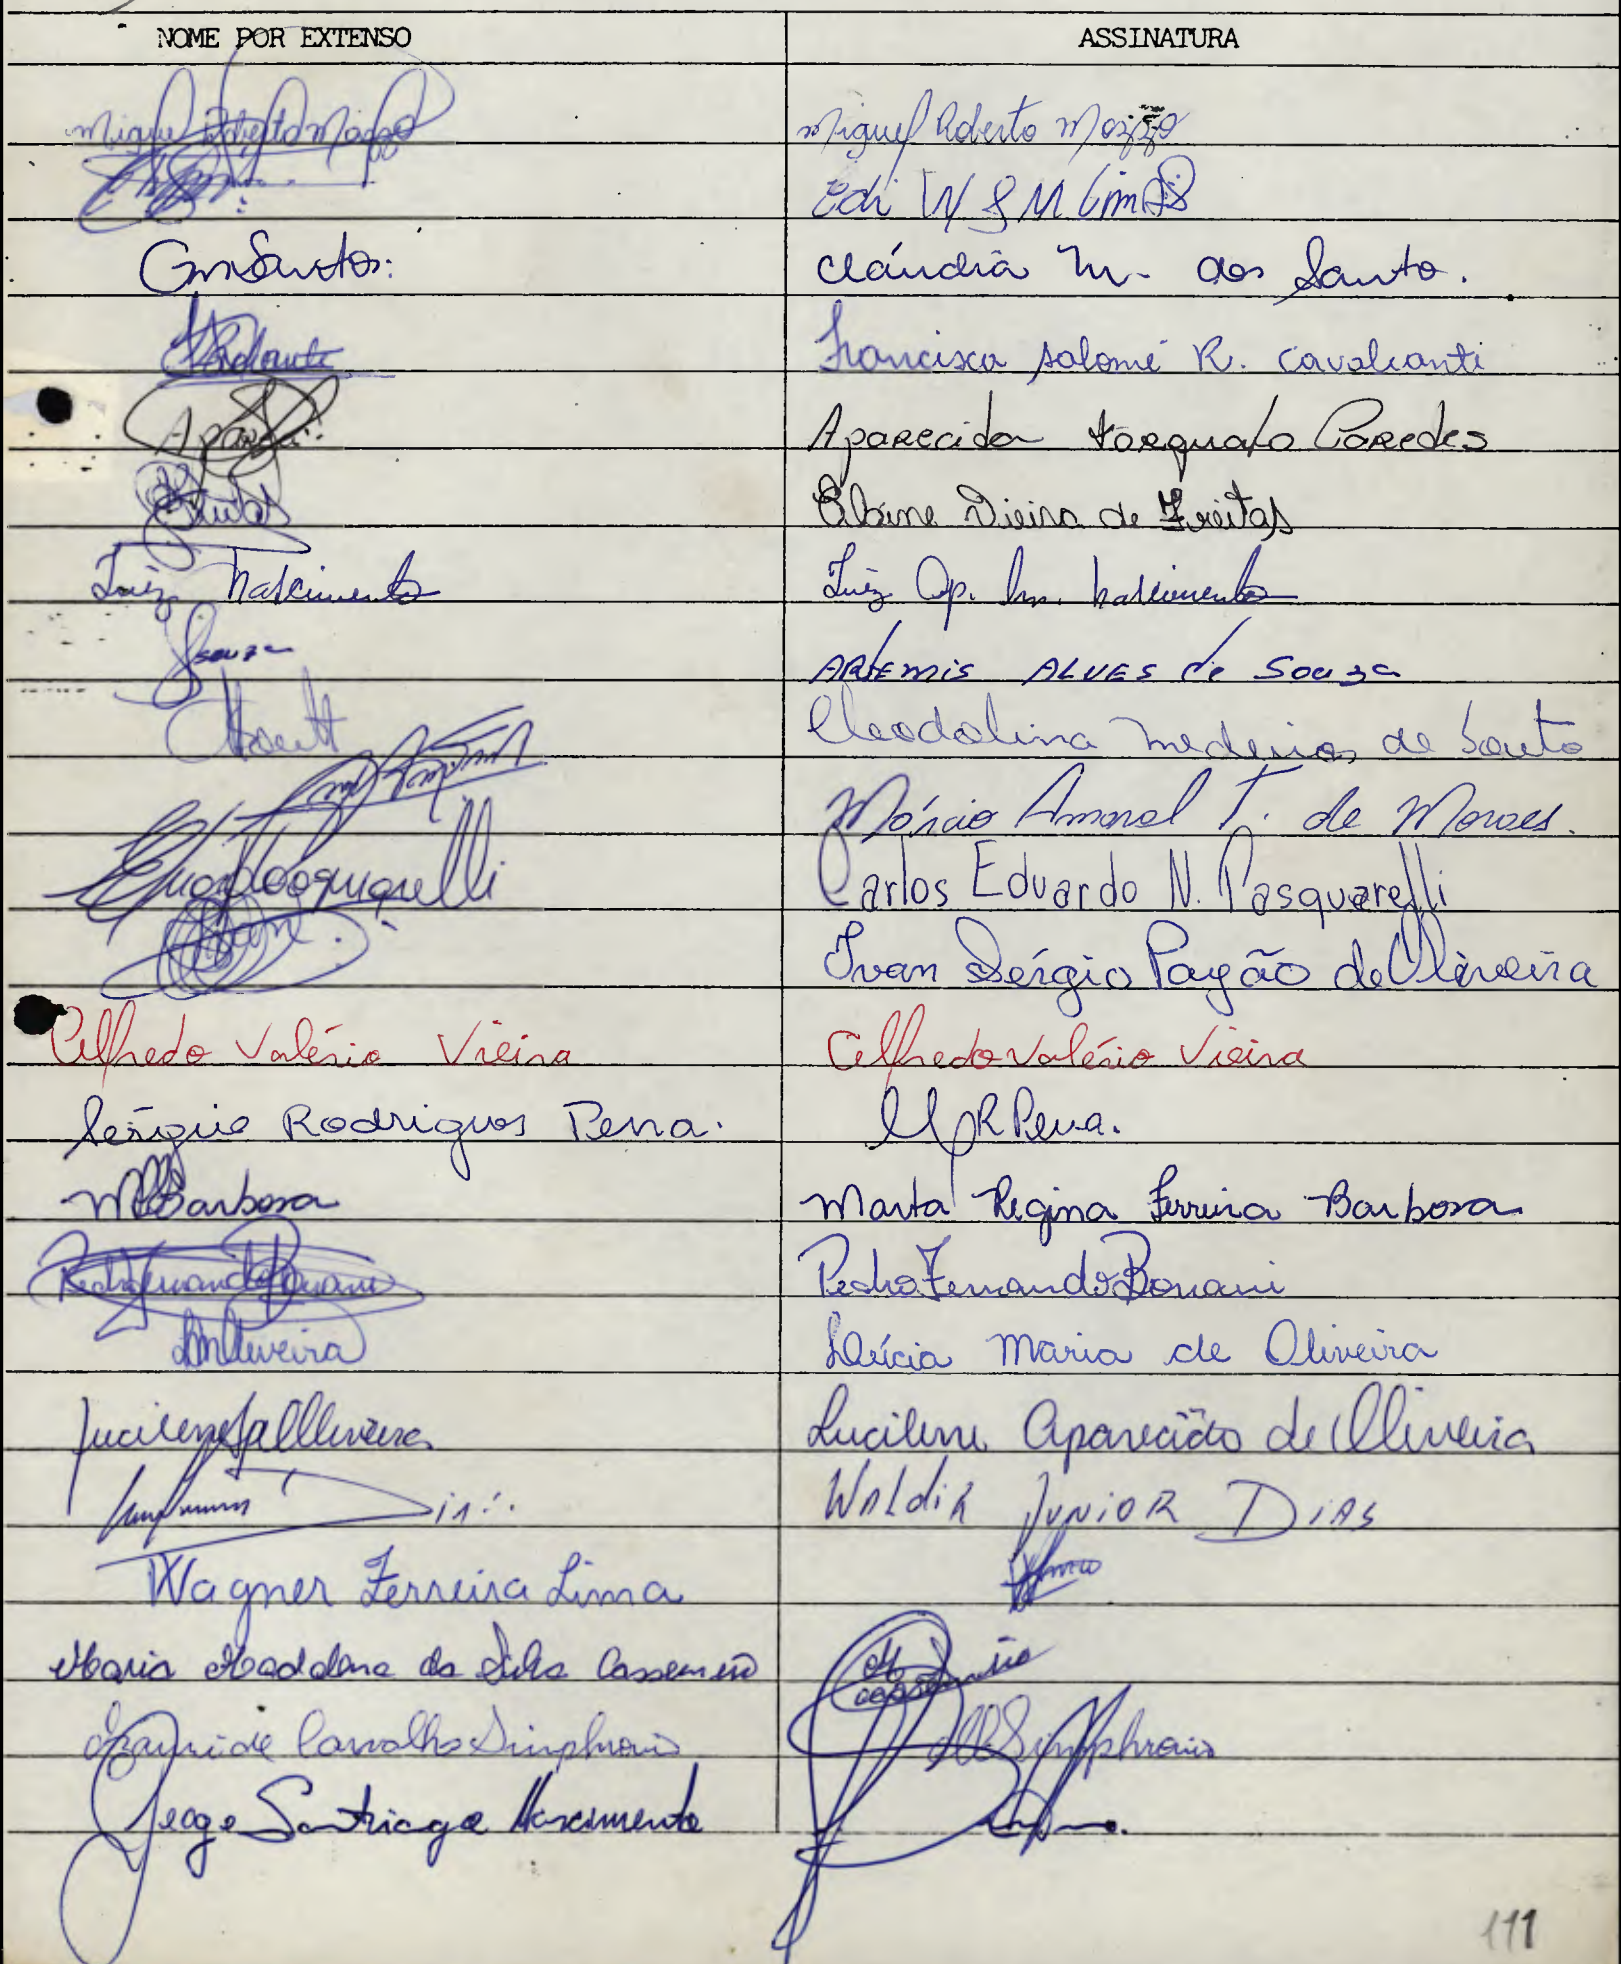 NOME POR EXTENSO ASSINATURA
Miguel Roberto Mazzo Miguel Roberto Mazzo
Edi W S M
CmSantos: Cláudia M. dos Santo.
Francisca Salomé R. Cavalcanti
Aparecida Torquato Paredes
Elaine Vieira de Freitas
Luiz Nascimento Luiz Ap. Nascimento
Souza ARTEMIS ALVES de Souza
Cleodolina Medeiros de Souto
Márcio Amaral T. de Moraes.
Carlos Eduardo N. Pasquarelli
Ivan Sérgio Payão de Oliveira
Alfredo Valério Vieira Alfredo Valério Vieira
Sérgio Rodrigues Pena. R Pena.
MBarbosa Marta Regina Ferreira Barbosa
Pedro Fernando Bonani Pedro Fernando Bonani
LMOliveira Lúcia Maria de Oliveira
Lucilene Oliveira Lucilene Aparecida de Oliveira
Dias WALDIR JUNIOR DIAS
Wagner Ferreira Lima
Maria Madalena da Silva Cassemiro
de Carvalho Simphronio Simphronio
Santiago Nascimento
111